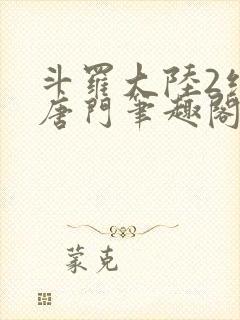 斗羅大陸2
唐門筆趣閣
蒙克